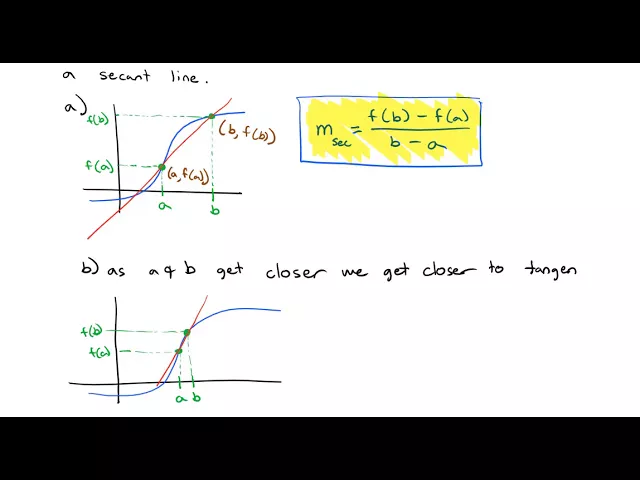 a secant line.
a)
f(b)
(b, f(b))
f(a)
(a, f(a))
a b
m sec = f(b) - f(a) / b - a
b) as a & b get closer we get closer to tangen
f(b)
f(a)
a b